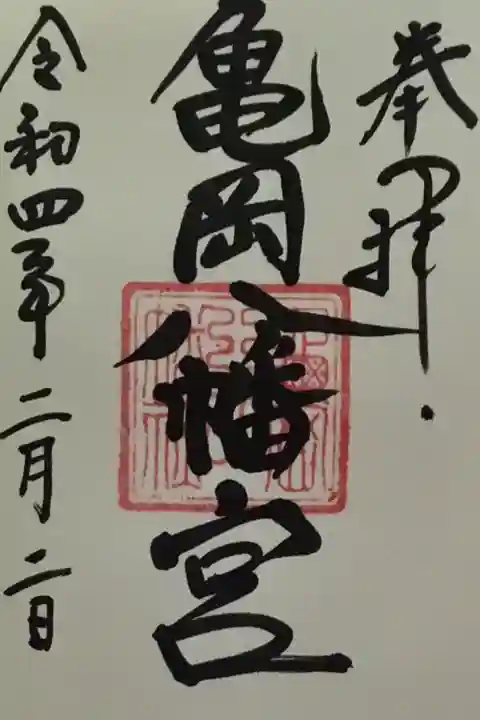 奉拝
亀岡八幡宮
令和四年二月二日